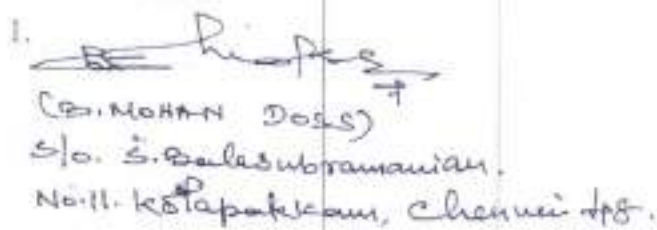 1.
(B. MOHAN DOSS)
S/o. S. Balasubramanian.
No. 11. Kolapakkam, Chennai